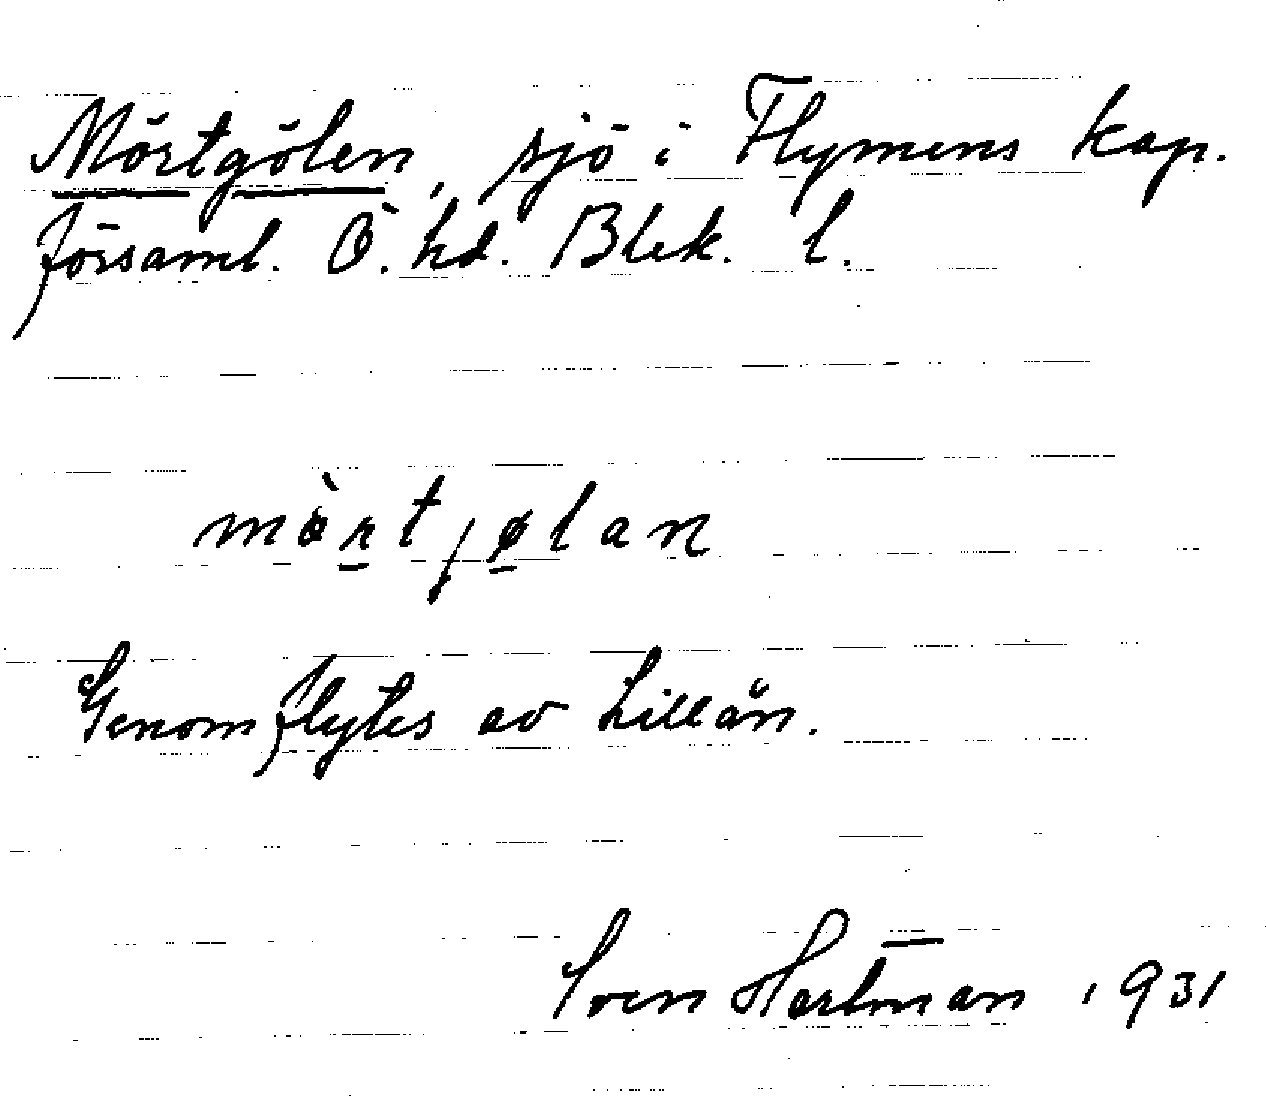 Mörtgölen, sjö i Flymens kap.
församl. Ö. hd. Blek. l.
mörtjølan
Genomflytes av Lillån.
Sven Hartman 1931